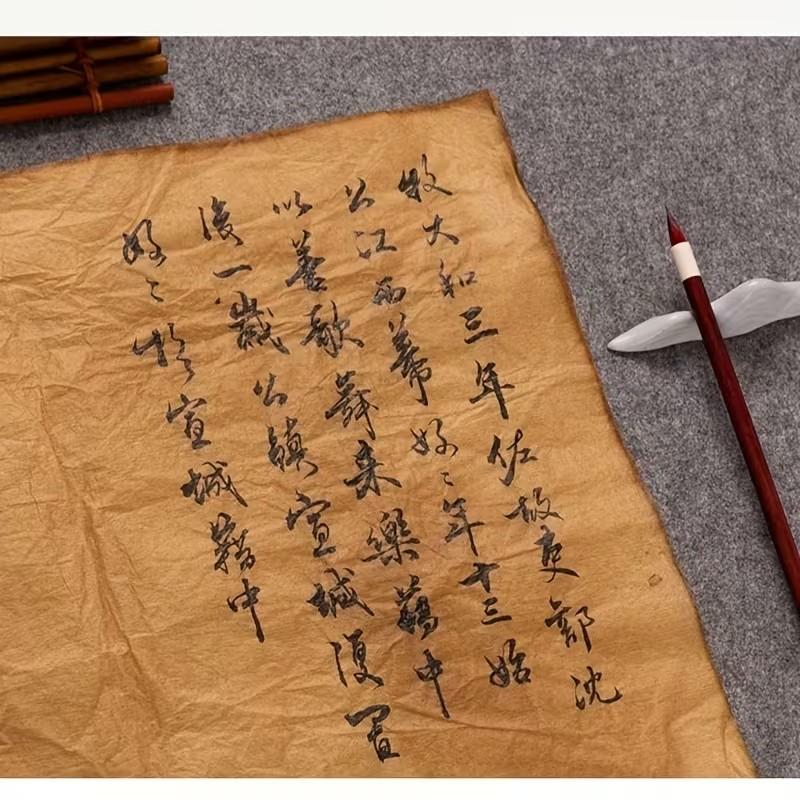 牧大和三年佐故吏部沈
公江西幕好〻年十三始
以善歌舞来樂籍中
後一歲公鎮宣城復置
好〻於宣城籍中